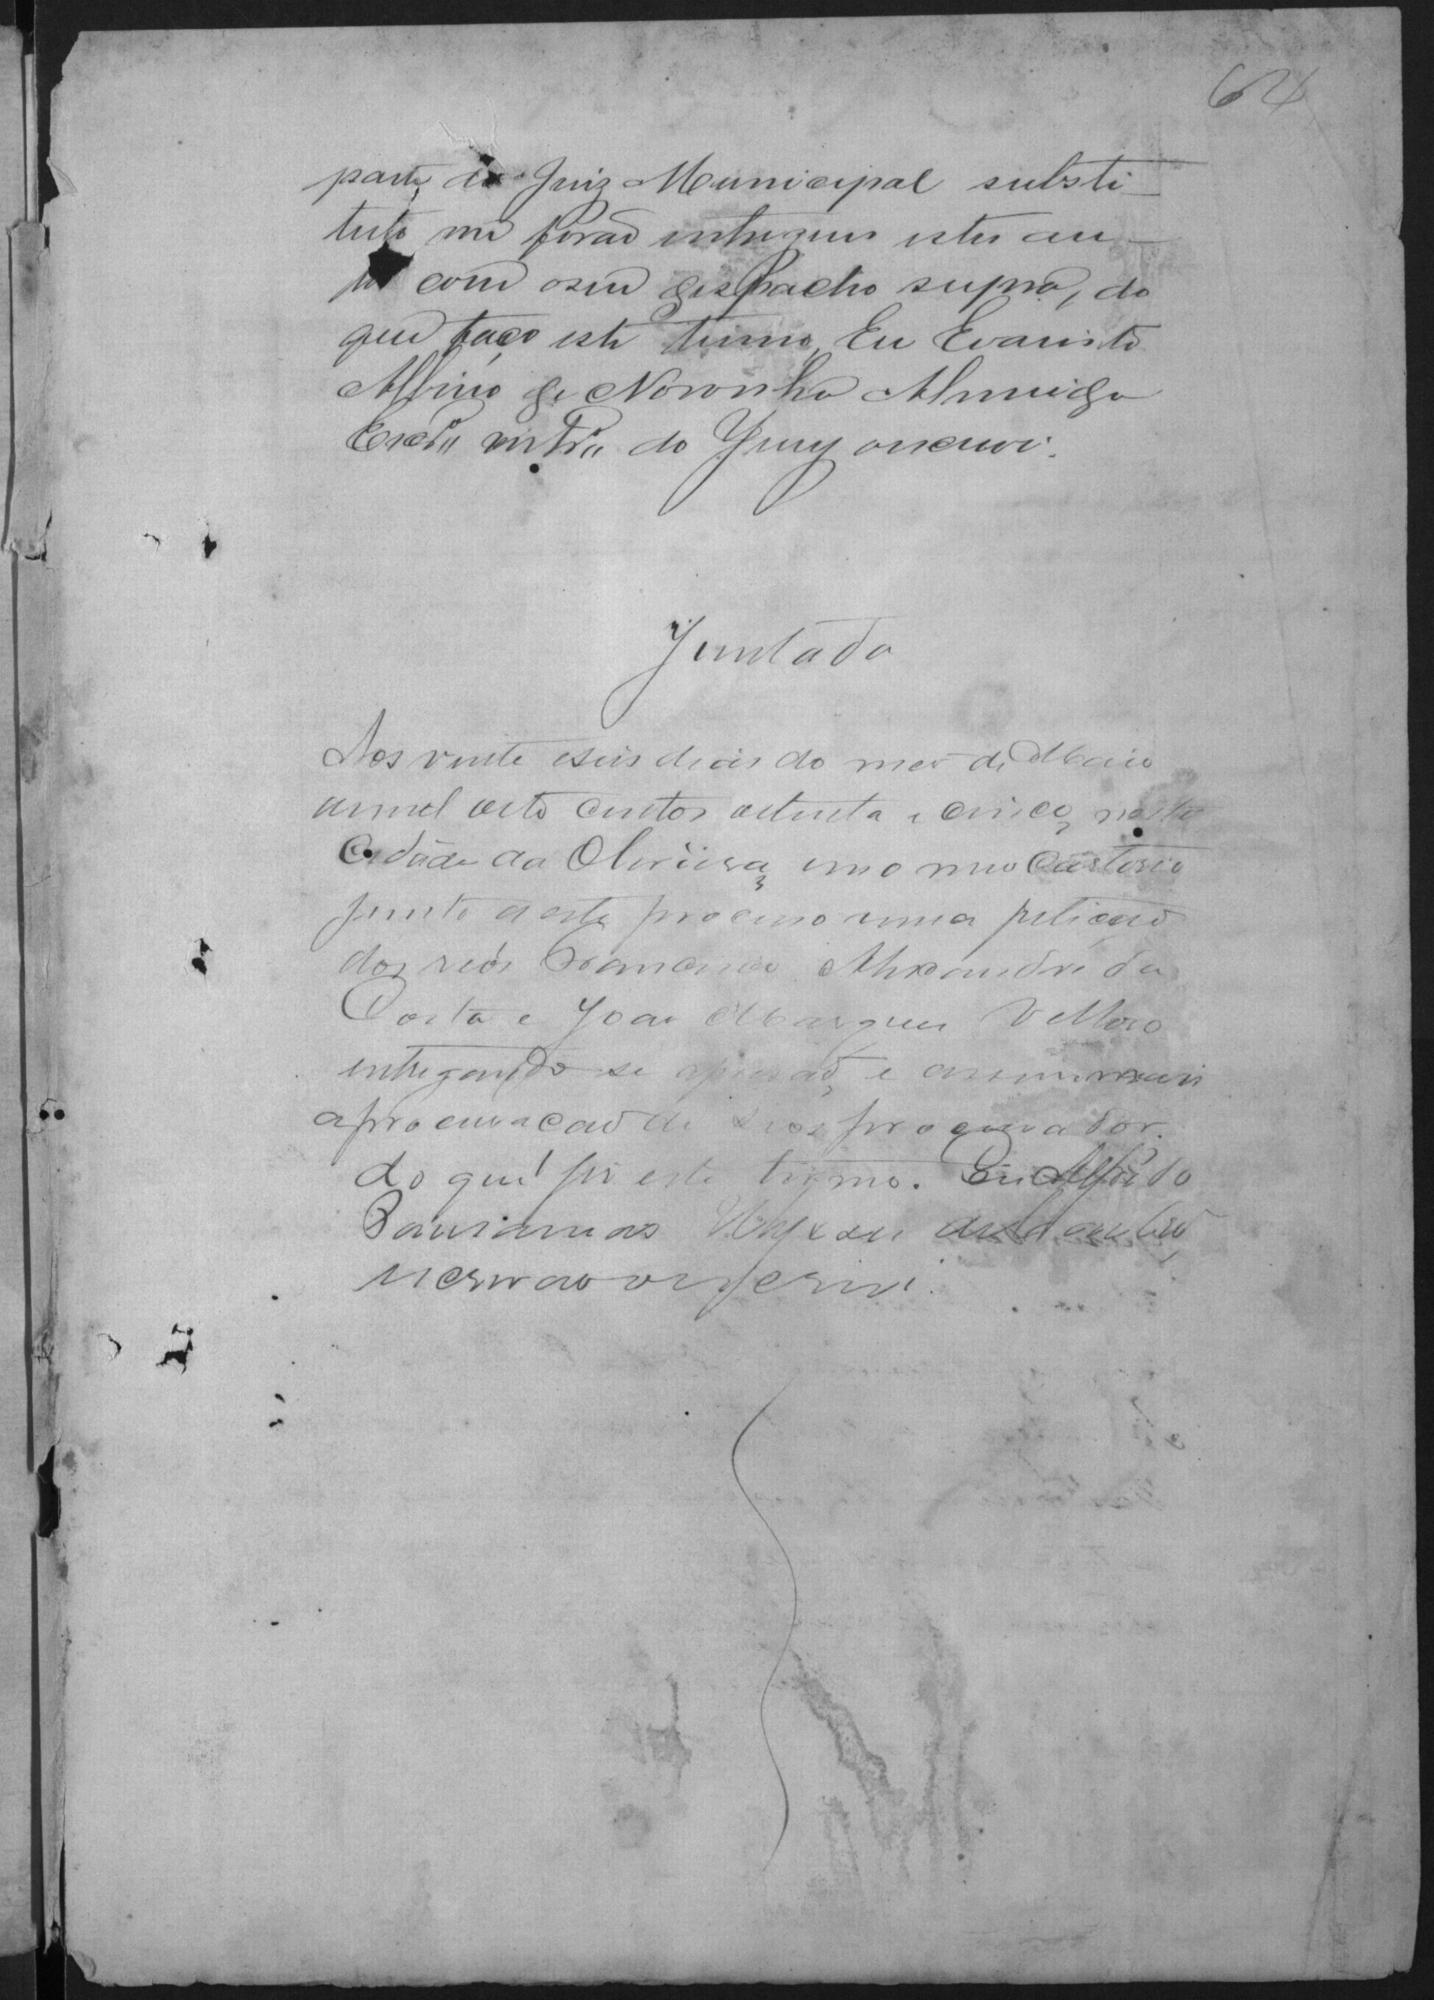 64
parte do Juiz Municipal substi-
tuto me forão entregues estes au-
tos com o seu despacho supra, do
que faço este termo, Eu Evaristo
Albino de Noronha Almeida
Escr.m do Jury o escrevi.
Juntada
Aos vinte e seis dias do mes de Maio
de mil oito centos oitenta e cinco, nesta
Cidade da Oliveira, em o meo Cartorio
junto a este processo uma petição
dos reós Francisco Alexandre da
Costa e João Marques Velloso
entregando se a prisão, e
a procuração de procurador.
do que fis este termo. Eu Alfredo
escrivão o escrevi.